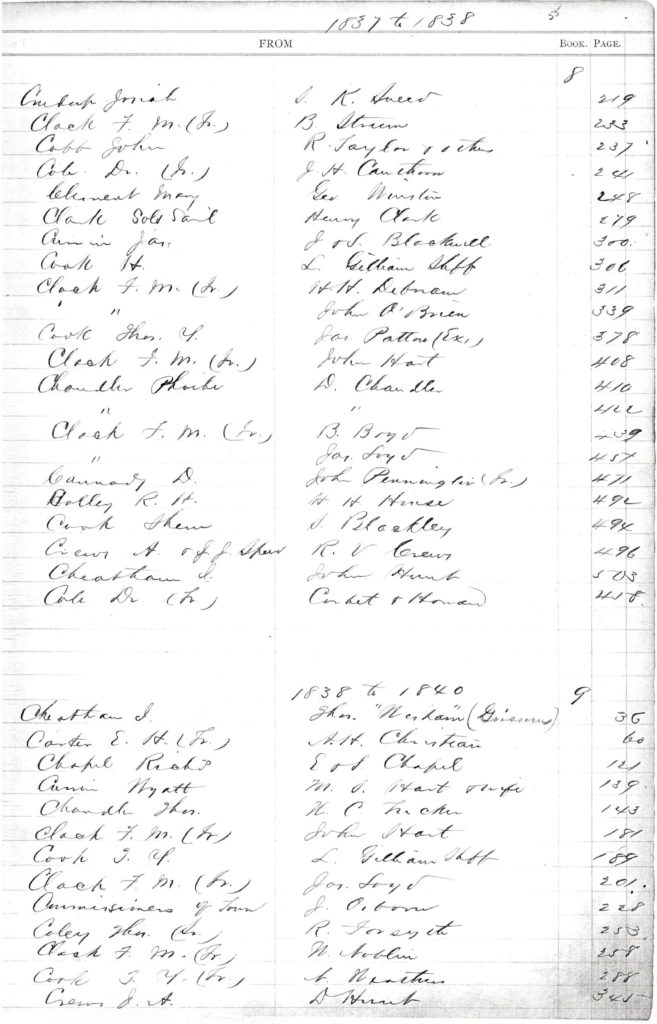 1837 to 1838 55
FROM BOOK. PAGE.
8
Josiah S. K. Sneed 219
Clack F. M. (Tr.) B. Strum 233
Cobb John R. Taylor & others 237
Cole Dr. (Tr.) J. H. Cawthorn 241
Clement Mary Geo Winston 248
Clark Henry Clark 279
Jas. J & S. Blackwell 300
Cook H. L. Gilliam Shff 306
Clack F. M. (Tr.) H H. Debnam 311
" " John O'Brien 339
Cook Thos. Y. Jas. Patton (Exr) 378
Clack F. M. (Tr.) John Hart 408
Chandler Phoebe D. Chandler 410
" " 422
Clack F. M. (Tr.) B. Boyd 439
" Jas. Loyd 457
Cannady D. John Pennington (Tr.) 471
R. H. H H 492
Cook Shem S. Blackley 494
Crews A. & J. J. R. V Crews 496
Cheatham I. John Hunt 503
Cole Dr (Tr) Corbet & 458
1838 to 1840 9
Cheatham I. Thos. 36
Carter E. H. (Tr.) A. H. Christian 60
Chapel Richd E & S Chapel 121
Wyatt M. S. Hart & wife 139
Chandler Thos. H. C. Tucker 143
Clack F. M. (Tr) John Hart 181
Cook T. Y. L. Gilliam Shff 189
Clack F. M. (Tr.) Jas. Loyd 201
Commissioners of Town J. Osborn 228
Coley Thos. (Tr.) R. Forsyth 253
Clack F. M. (Tr) W. Noblin 258
Cook T. Y. (Tr.) 288
Crews J. A. D Hunt 345